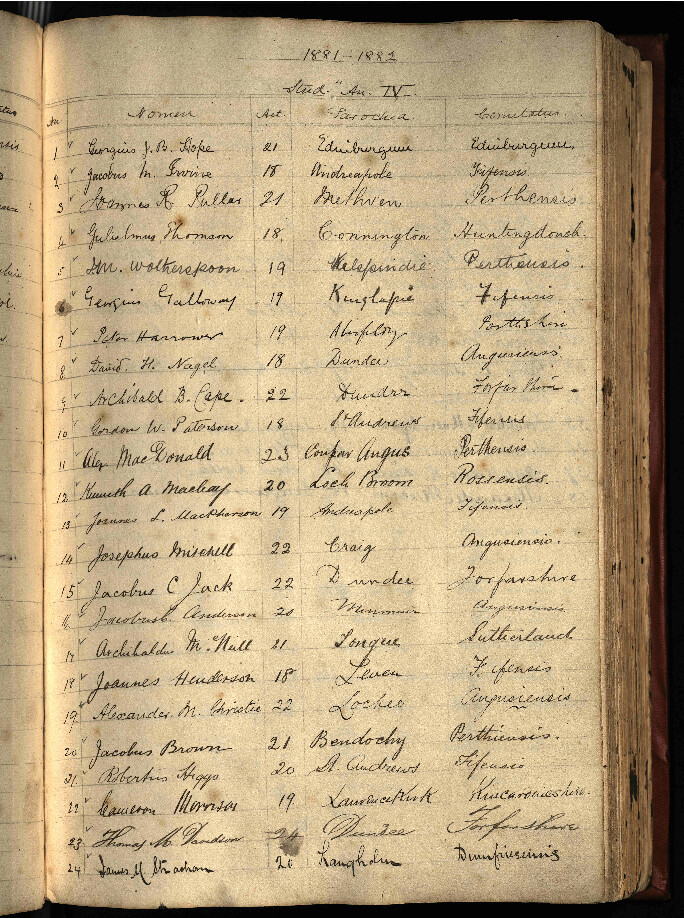 1881-1882
Stud. An. IV
No. Nomen Aet. Parochia Comitatus
1 Georgius J. B. Hope 21 Edinburgum Edinburgum
2 Jacobus M. Irvine 18 Andreapole Fifensis
3 R. Pullar 21 Methven Perthensis
4 Gulielmus Thomson 18 Connington Huntingdonsh.
5 Wotherspoon 19 Kilspindie Perthensis.
6 Georgius Galloway 19 Fifensis
7 Peter Harrower 19 Perthshire
8 David H. Nagel 18 Dundee Angusiensis
9 Archibald B. Cape. 22 Dundee Forfar Shire.
10 Gordon W. Paterson 18 St Andrews Fifensis
11 Alex MacDonald 23 Coupar Angus Perthensis
12 Kenneth A. Mackay 20 Loch Broom Rossensis.
13 Joannes L. Mackherson 19 Andreapole Fifensis.
14 Josephus Mitchell 22 Craig Angusiensis.
15 Jacobus C Jack 22 Dundee Forfarshire
16 Anderson 20 Angusiensis
17 Archibaldus McNeill 21 Tongue Sutherland
18 Joannes Henderson 18 Leven Fifensis
19 Alexander M. Christie 22 Lochee Angusiensis
20 Jacobus Brown 21 Bendochy Perthiensis.
21 Robertus Higgs 20 St. Andrews Fifensis
22 Cameron Morrison 19 Laurencekirk Kincardineshire.
23 Thomas M. Davidson 24 Dundee Forfarshire
24 James M. Strachan 20 Langholm Dumfriesensis